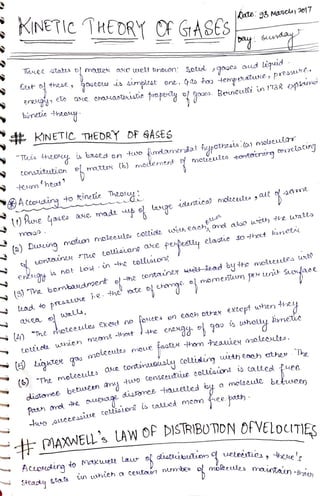 KINETIC THEORY OF GASES
Date: 23 March, 2017
Day: Sunday
Three states of matter are well known: Solid, gases and liquid.
Out of these, gaseous is simplest one. Gas has temperature, pressure,
energy, etc are characteristic property of gases. Bernoulli in 1738 explained
kinetic theory.
# KINETIC THEORY OF GASES
"This theory is based on two fundamental hypothesis (a) molecular
constitution of matter (b) movement of molecules containing correlating
term "heat"
According to Kinetic Theory:
(1) Pure Gases are made up of large identical molecules, all of same
mass.
(2) During motion molecules collide with each other and also with the walls
of container. The collisions are perfectly elastic so that kinetic
energy is not lost in the collisions
(3) The bombardment of the container wall lead by the molecules will
lead to pressure i.e. the rate of change of momentum per unit surface
area of walls.
(4) The molecules exert no forces on each other except when they
collide which means that the energy of gas is wholly kinetic
(5) Lighter gas molecules move faster than heavier molecules.
(6) The molecules are continuously colliding with each other. The
distance between any two consecutive collisions is called free
path and the average distance travelled by a molecule between
two successive collisions is called mean free path.
# MAXWELL's LAW OF DISTRIBUTION OF VELOCITIES
According to Maxwell Law of distribution of velocities, there's
steady state in which a certain number of molecules maintain their